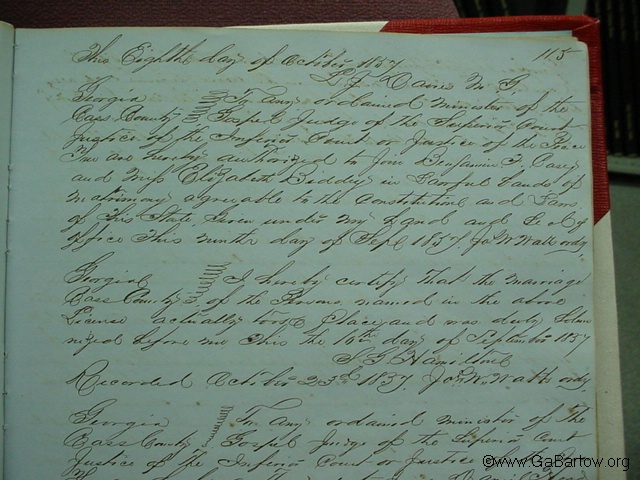 This Eighth day of October 1857 115
L. J. Davis M. G.
Georgia To any ordained minister of the
Cass County Gospel Judge of the Superior Court
Justice of the Inferior Court or Justice of the Peace
You are hereby authorized to Join Benjamin F. Casey
and Miss Elizabeth Biddy in Lawful bands of
matrimony agreeable to the Constitution and Laws
of This State Given under my hand and Seal of
office This ninth day of Sept 1857. Jas W Watts ordy
Georgia I hereby certify that the marriage
Cass County of the Persons named in the above
License actually took place and was duly Solem
nized before me This the 10th day of September 1857
S. G. Hamilton
Recorded October 23d 1857 Jas W. Watts ordy
Georgia To any ordained minister of the
Cass County Gospel Judge of the Superior Court
Justice of the Inferior Court or Justice of the
©www.GaBartow.org